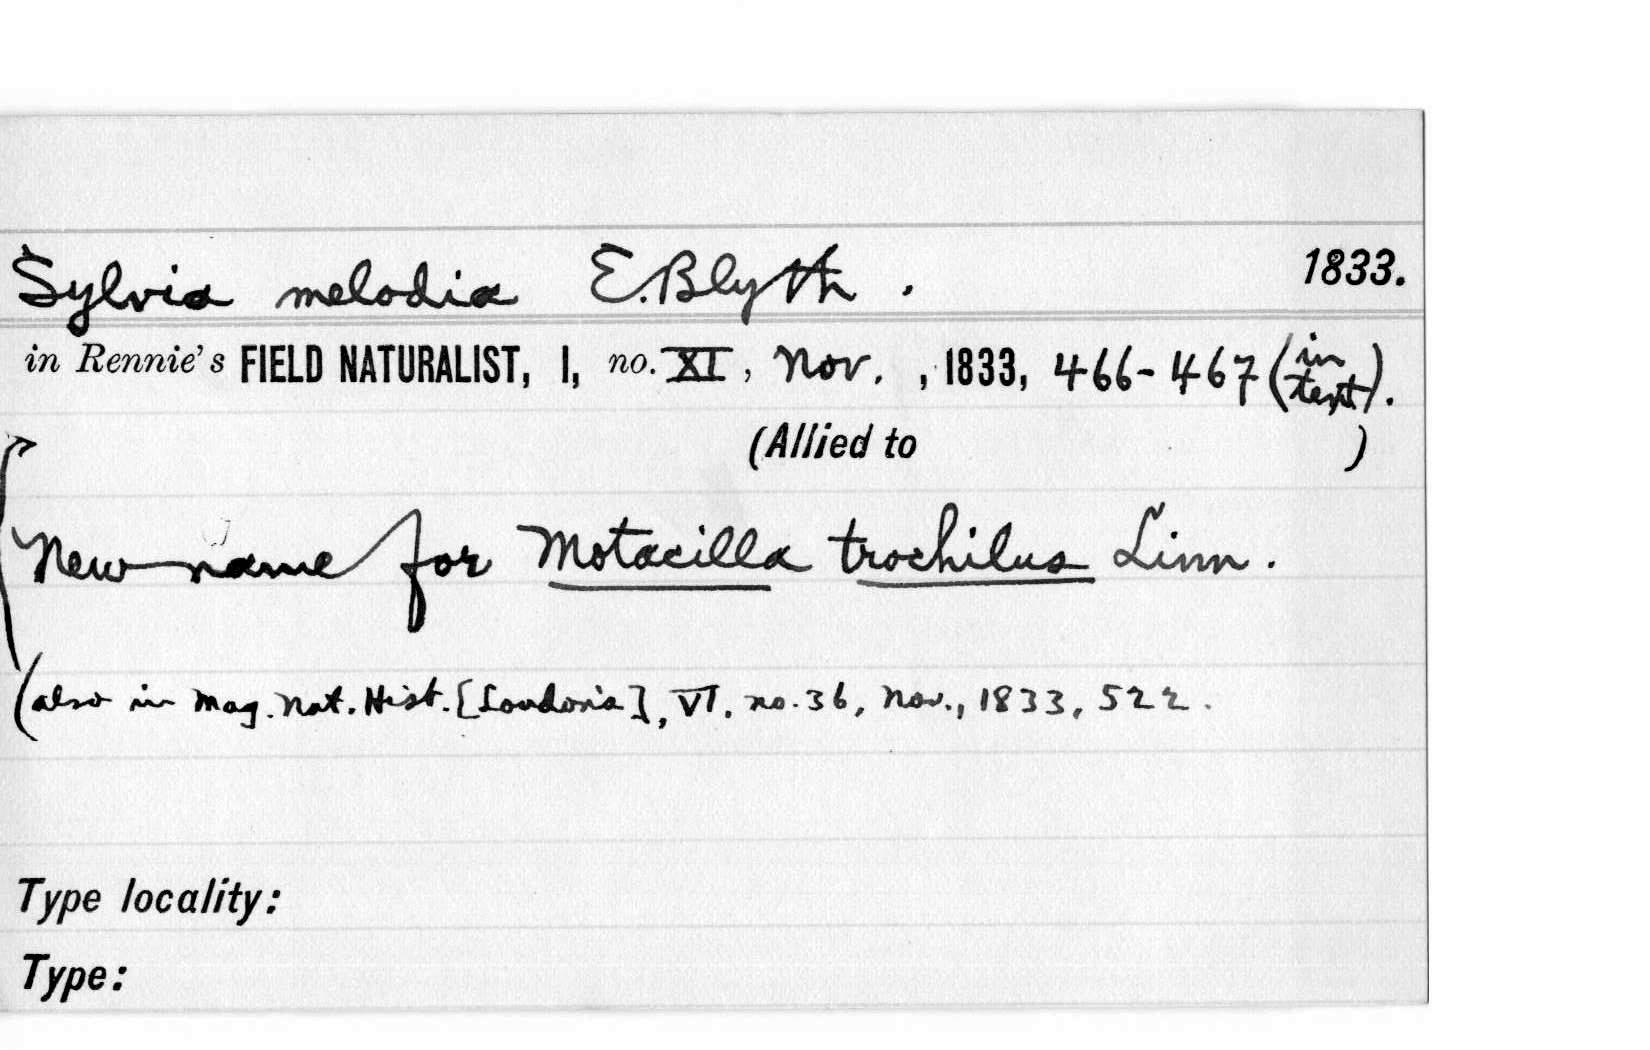 Sylvia melodia E. Blyth. 1833.
in Rennie's FIELD NATURALIST, I, no. XI, Nov. , 1833, 466-467 (in text).
(Allied to )
New name for Motacilla trochilus Linn.
(also in Mag. Nat. Hist. [Loudon's], VI, no. 36, Nov., 1833, 522.
Type locality:
Type: